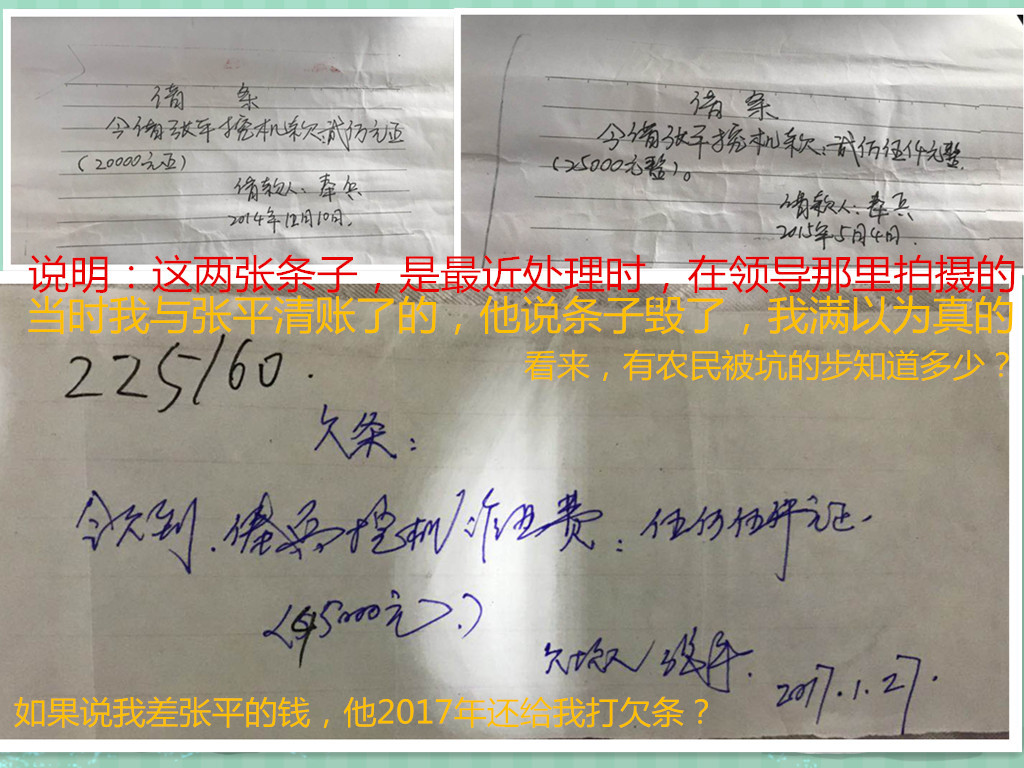 借 条
今借张平挖机款:贰万元正
(20000元正)
借款人:奉兵
2014年12月10日.
借 条
今借张平挖机款:贰万伍仟元整.
(25000元整)。
借款人:奉兵
2015年5月4日.
说明：这两张条子，是最近处理时，在领导那里拍摄的
当时我与张平清账了的，他说条子毁了，我满以为真的
看来，有农民被坑的步知道多少？
225160.
欠条:
今欠到.俸兵挖机 费:
5000元
欠款人 张平.
2017.1.27.
如果说我差张平的钱，他2017年还给我打欠条？